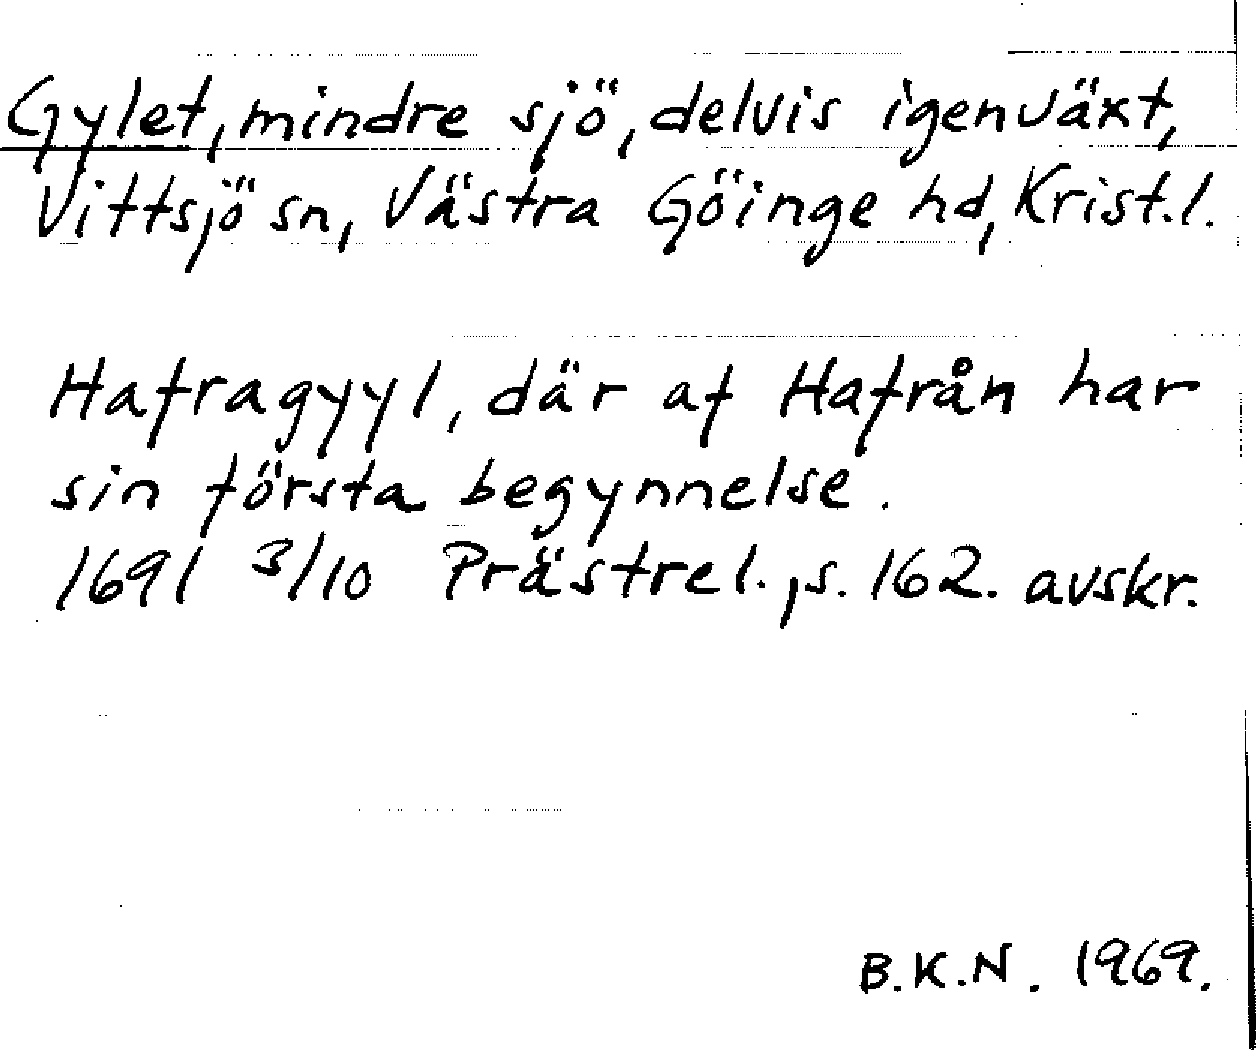 Gylet, mindre sjö, delvis igenväxt,
Vittsjö sn, Västra Göinge hd, Krist.l.
Hafragyyl, där af Hafrån har
sin första begynnelse.
1691 3/10 Prästrel., s. 162. avskr.
B.K.N. 1969.